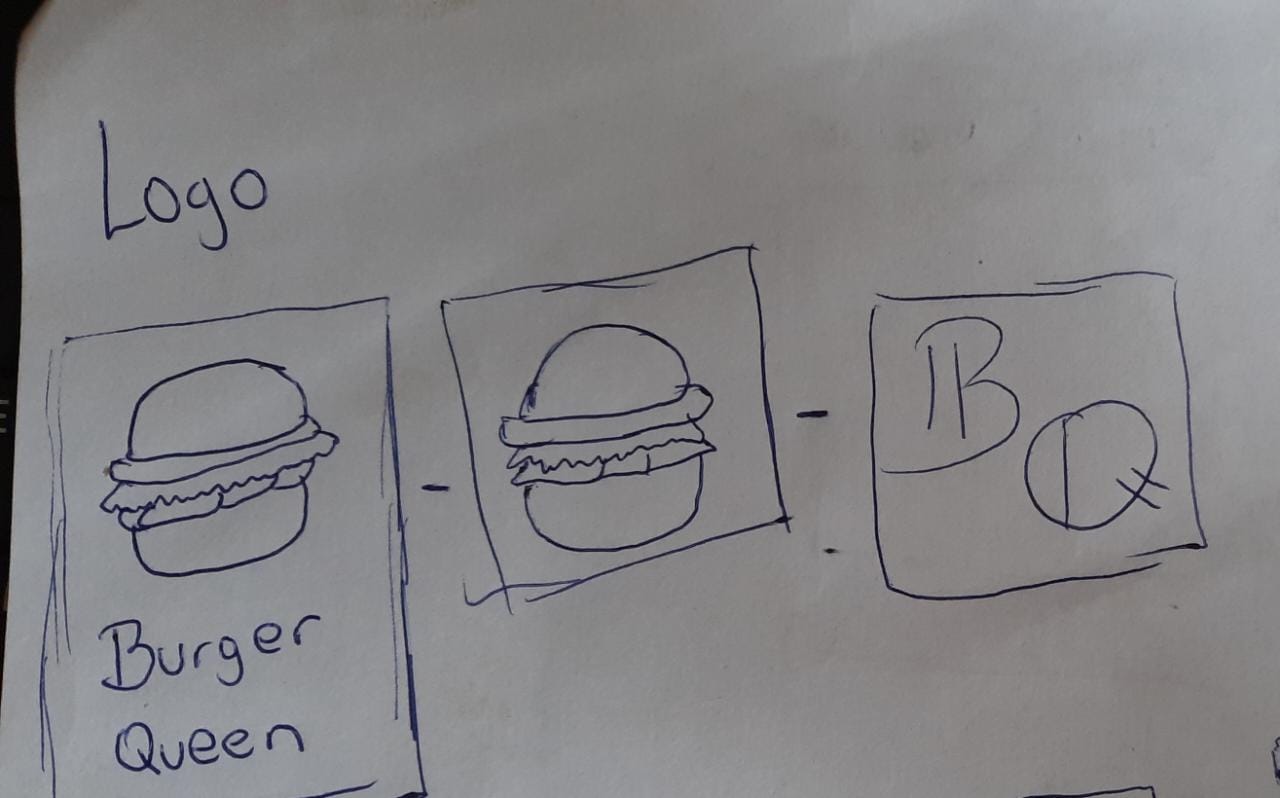 Logo
Burger
Queen
B
Q